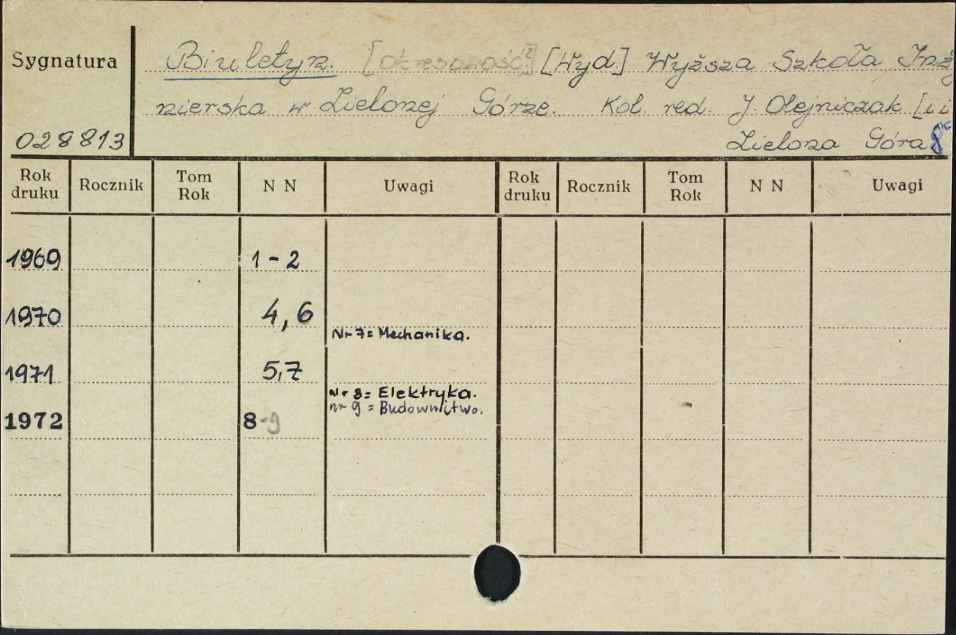 Sygnatura
028813
Biuletyn. [Okresowość?] [Wyd] Wyższa Szkoła Inż
nierska w Zielonej Górze. Kol. red. J. Olejniczak [i i
Zielona Góra
Rok druku Rocznik Tom Rok N N Uwagi Rok druku Rocznik Tom Rok N N Uwagi
1969 1-2
1970 4,6
Nr 7= Mechanika.
1971 5,7
Nr 8= Elektryka.
nr 9 = Budownictwo.
1972 8-9